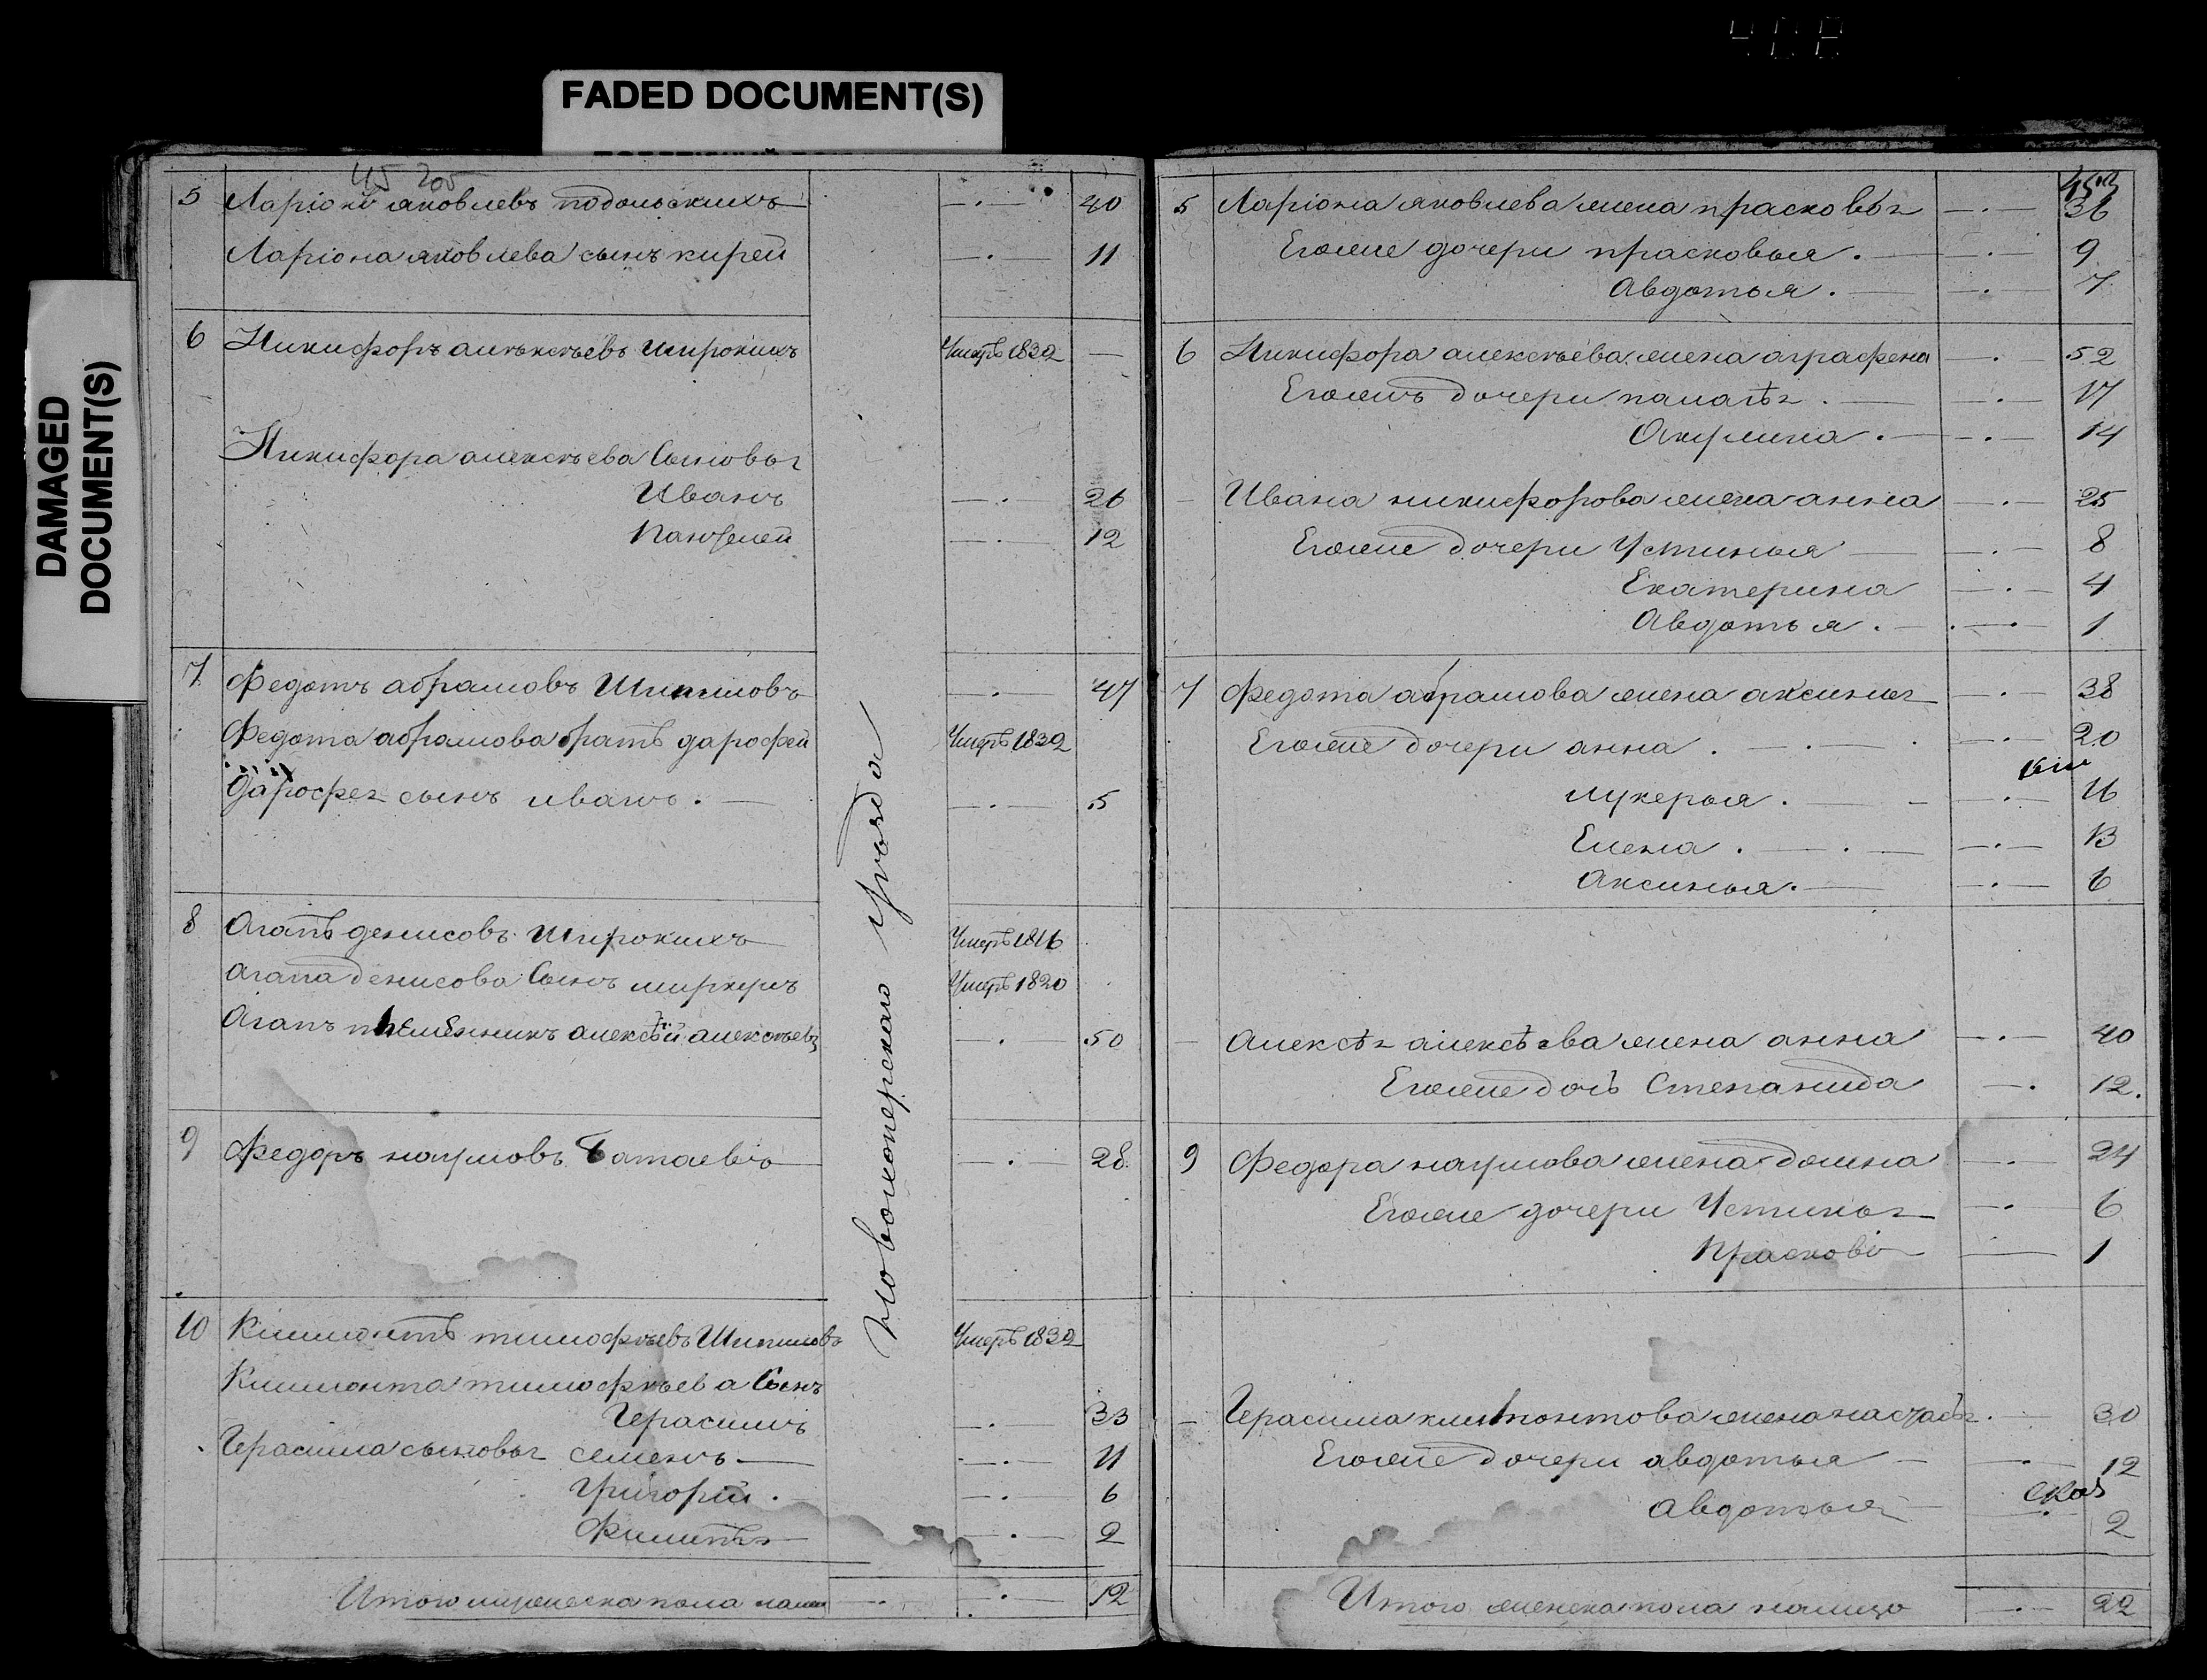 408
FADED DOCUMENT(S)
DAMAGED
DOCUMENT(S)
45 205
5 Ларіонъ яковлевъ подольскихъ —.— 40
Ларіона яковлева сынъ кирей —.— 11
6 Никифоръ алѣксѣевъ Широкихъ Умеръ 1832 —
Никифора алексѣева Сыновьг
Иванъ —.— 26
Пантелей —.— 12
7 Федотъ абрамовъ Шипиловъ —.— 47
Федота абрамова братъ дарофей Умеръ 1832
Дарофег сынъ иванъ. —.— 5
8 Агапъ денисовъ Широкихъ Умеръ 1816
Агапа денисова Сынъ миркулъ Умеръ 1820
Агапъ племенникъ алексѣй алексѣевъ —.— 50
9 Федоръ наумовъ Батаевъ —.— 28
10 Климонтъ тимофѣевъ Шипиловъ Умеръ 1832
Климонта тимофѣева Сынъ
Герасимъ —.— 33
Герасима сыновьг семенъ —.— 11
Григорій —.— 6
Филипъ —.— 2
Итого мужеска пола —.— 12
Новохоперскаго уѣзда
453
5 Ларіона яковлева жена прасковьг —.— 36
Егожже дочери прасковья. —.— 9
Авдотья. —.— 7
6 Никифора алексѣева жена аграфена —.— 52
дочери палагѣг —.— 17
Акулина. —.— 14
Ивана никифорова жена анна —.— 25
Егожже дочери Устинья —.— 8
Екатерина —.— 4
Авдотья. —.— 1
7 Федота абрамова жена аксиньг —.— 38
Егожже дочери анна. —.— 20
лукерья. —.— 16
Елена. —.— 13
Аксинья. —.— 6
Алексѣг алексѣева жена анна —.— 40
Егожже дочь Степанида —. 12.
9 Федора наумова жена домна —.— 24
Егожже дочери Устиньг —.— 6
Прасковь — 1
Герасима климонтова жена настасьг. — 30
Егожже дочери авдотья —.— 12
авдотья —.— 2
Итого женска пола налицо —.— 22